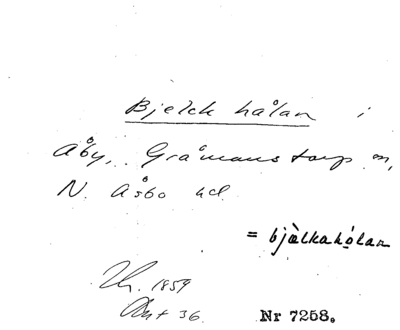 Bjelck hålan i
Åby, Gråmanstorp sn,
N. Åsbo hd.
= bjälkahólan
1859
Akt 36. Nr 7258.